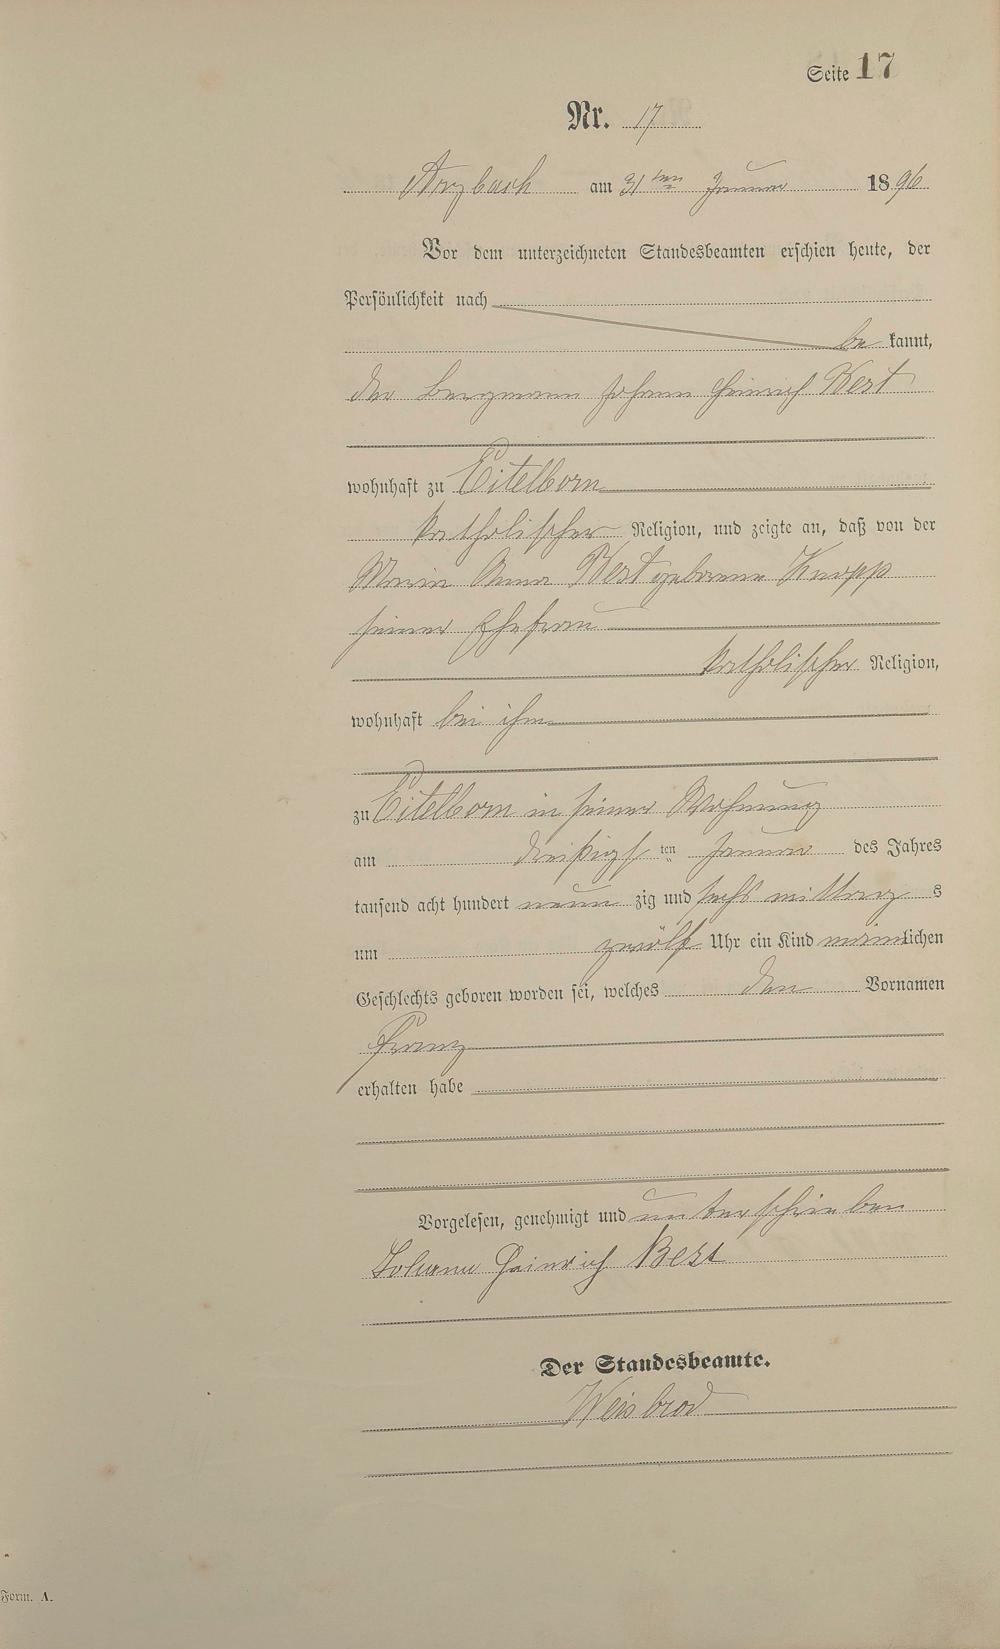 Seite 17
Nr. 17
Arzbach am 31ten Januar 1896
Vor dem unterzeichneten Standesbeamten erschien heute, der
Persönlichkeit nach
be kannt,
der Bergmann Johann Heinrich Best
wohnhaft zu Eitelborn
katholischer Religion, und zeigte an, daß von der
Maria Anna Best geborene Knopp
seiner Ehefrau
katholischer Religion,
wohnhaft bei ihm
zu Eitelborn in seiner Wohnung
am dreißigsten Januar des Jahres
tausend acht hundert neun zig und sechs mittag s
um zwölf Uhr ein Kind männlichen
Geschlechts geboren worden sei, welches den Vornamen
Franz
erhalten habe
Vorgelesen, genehmigt und unterschrieben
Johann Heinrich Best
Der Standesbeamte.
Weisbrod
Form. A.